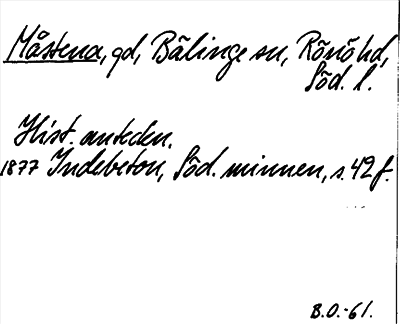 Måstena, gd, Bälinge sn, Rönö hd,
Söd. l.
Hist. anteckn.
1877 Indebetou, Söd. minnen, s. 42 f.
B.O.-61.